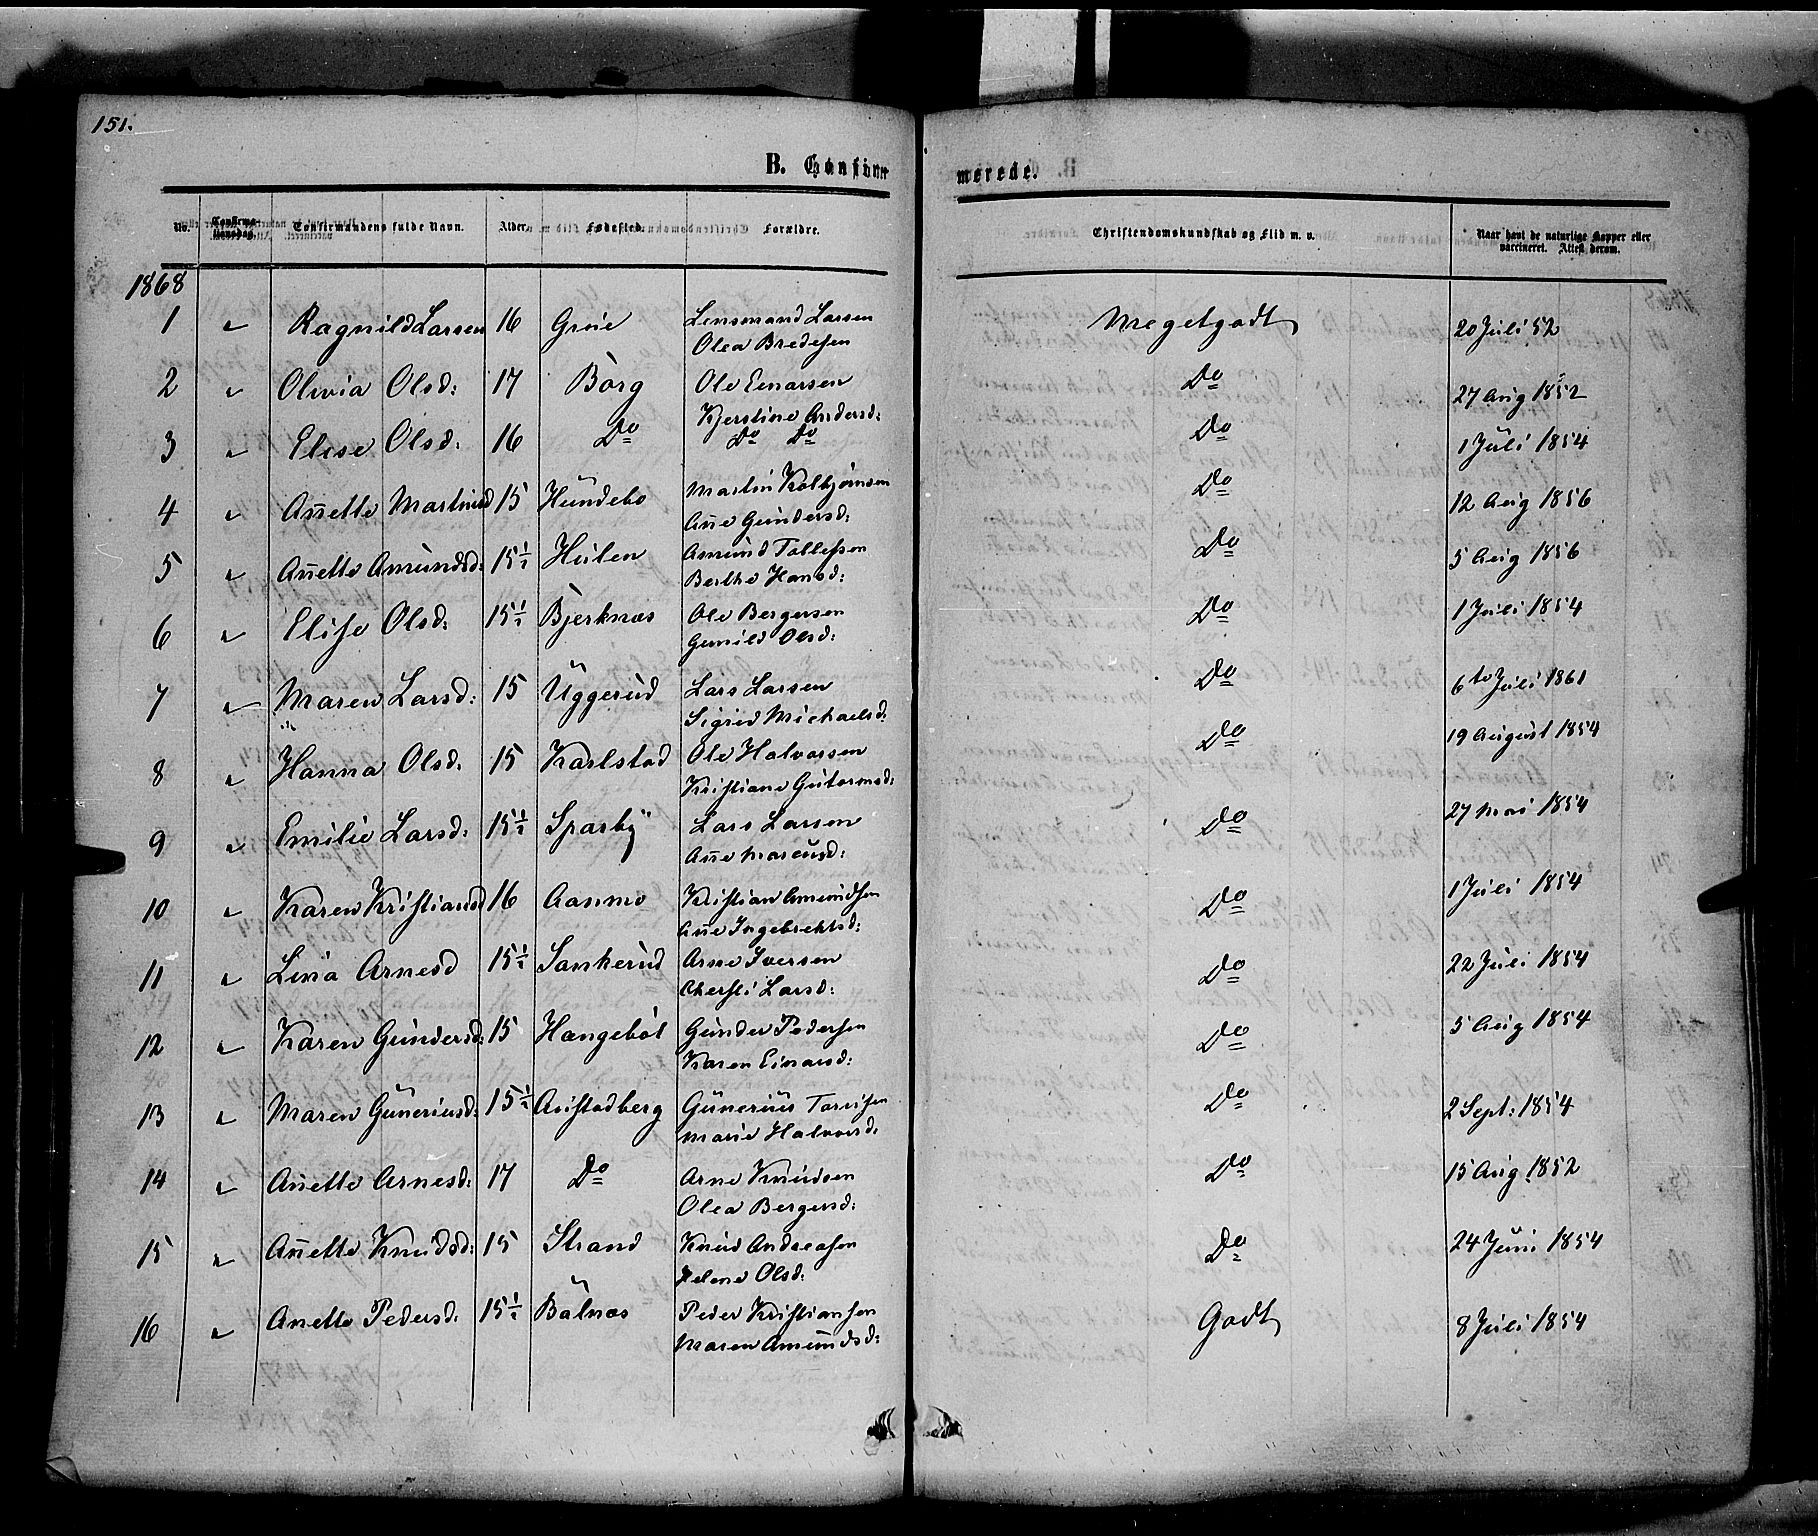 151.
B. Confirmerede.
No. Confirmationsdag. Confirmandens fulde Navn. Alder. Fødested. Forældre. Christendomskundskab og Flid m. v. Naar havt de naturlige Kopper eller vaccineret. Attest derom.
1868
1 " Ragnild Larsen 16 Grue Lensmand Larsen Olea Bredesen Megetgodt 20 Juli 52
2 " Olivia Olsd: 17 Borg Ole Einarsen Kjerstine Andersd: Do 27 Aug 1852
3 " Elise Olsd: 16 Do Do Do Do 1 Juli 1854
4 " Anette Martinsd 15 Hundebo Martin Kolbjørnsen Ane Gundersd: Do 12 Aug 1856
5 " Anette Amundsd: 15½ Hulen Amund Tollefsen Berthe Hansd: Do 5 Aug 1856
6 " Elise Olsd: 15½ Bjerknæs Ole Bergersen Gunild Olsd: Do 1 Juli 1854
7 " Maren Larsd: 15 Uggerud Lars Larsen Sigrid Michaelsd: Do 6te Juli 1861
8 " Hanna Olsd. 15 Karlstad Ole Halvorsen Kristiane Gutormsd: Do 19 August 1854
9 " Emilie Larsd: 15½ Sparby Lars Larsen Ane Marcusd: Do 27 Mai 1854
10 " Karen Kristiansd 16 Aanmo Kristian Amundsen Ane Ingebrektsd: Do 1 Juli 1854
11 " Lina Arnesd 15½ Sankerud Arne Iversen Chersti Larsd: Do 22 Juli 1854
12 " Karen Gundersd: 15 Hangebøl Gunder Pedersen Karen Einarsd: Do 5 Aug 1854
13 " Maren Guneriusd: 15½ Austadberg Gunerius Marie Halvorsd. Do 2 Sept: 1854
14 " Anette Arnesd: 17 Do Arne Knudsen Olea Bergersd: Do 15 Aug 1852
15 " Anette Knudsd: 15 Strand Knud Andreasen Helene Olsd: Do 24 Juni 1854
16 " Anette Pedersd. 15½ Bølnæs Peder Kristiansen Maren Amundsd: Godt 8 Juli 1854